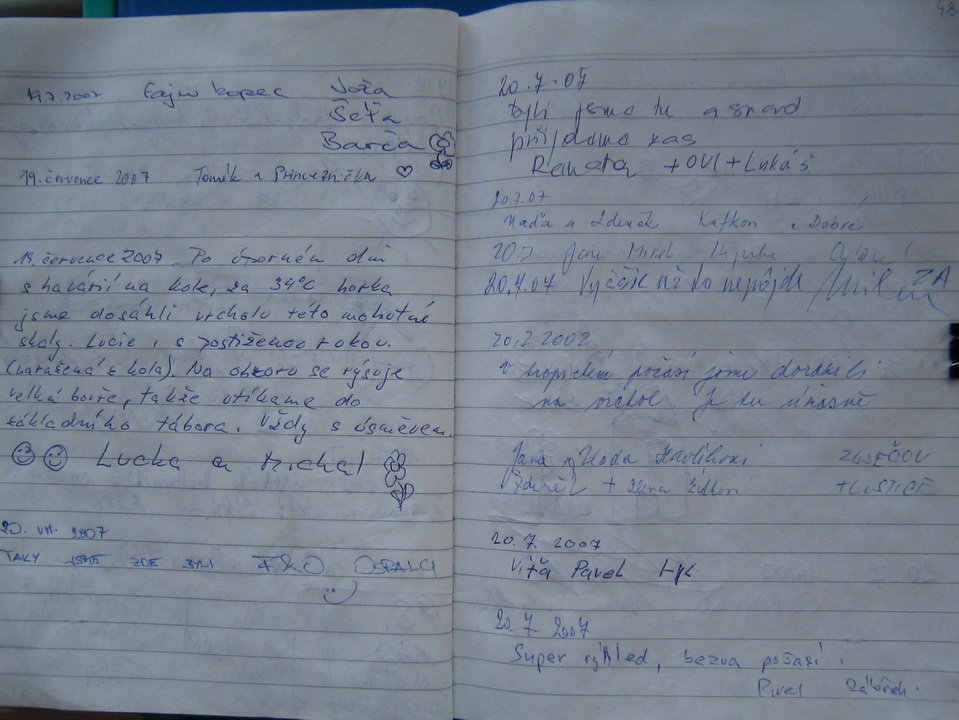 19.7.2007 Fajn kopec Joža
Šéťa
Barča
19. července 2007 Tomík a Princeznička
19. července 2007 Po úporném dni
s havárií na kole, za 34°C horka
jsme dosáhli vrcholu této mohutné
skály. Lucie, s postiženou rukou.
(naražená s kola). Na obzoru se rýsuje
velká bouře, takže utíkáme do
základního tábora. Vždy s úsměvem.
Lucka a Michal
20. VII. 2007
TAKY JSME ZDE BYLI
48
20.7.07
byli jsme tu a snad
přijdeme zas
Renata + OVI + Lukáš
20.7.07
Naďa a Zdeněk z Dobré
20.7 Jana Mirek
20.7.07 Vyššie už to nepôjde ZA
20.7.2007
v tropickém počasí jsme dorazili
na vrchol. Je tu úžasně
Jana Havlíkovi
Zdeněk + Alena
20.7.2007
Víťa Pavel
20.7 2007
Super výhled, bezva počasí.
Pavel